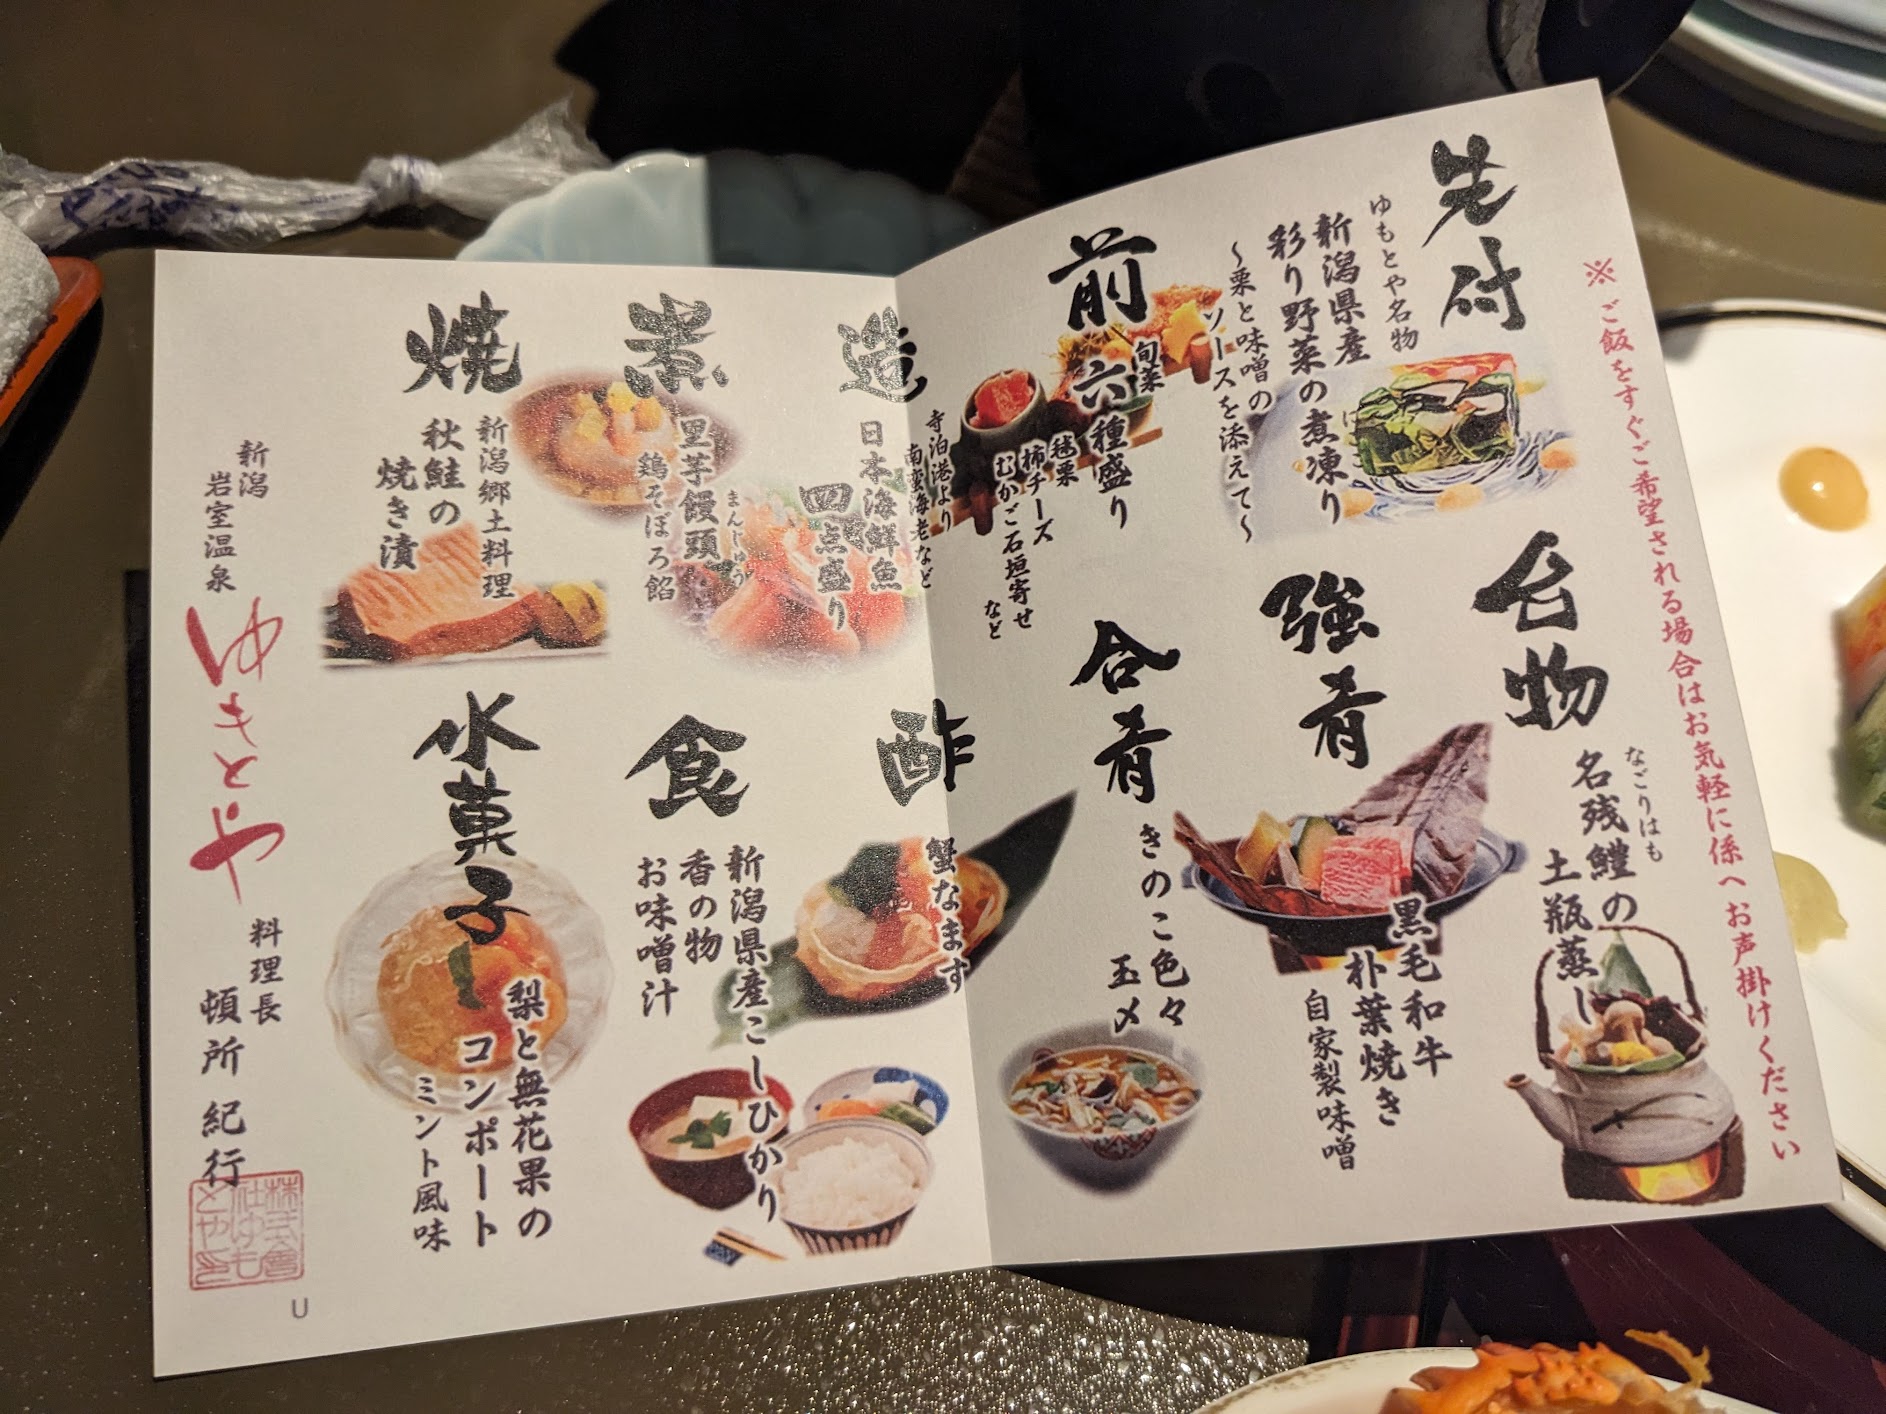 ※ご飯をすぐご希望される場合はお気軽に係へお声掛けください
先付
ゆもとや名物
新潟県産
彩り野菜の煮凍り
～栗と味噌の
ソースを添えて～
前
旬菜
六種盛り
毬栗
柿チーズ
むかご石垣寄せ
など
造
寺泊港より
南蛮海老など
日本海鮮魚
四点盛り
煮
里芋饅頭
まんじゅう
鶏そぼろ餡
焼
新潟郷土料理
秋鮭の
焼き漬
台物
なごりはも
名残鱧の
土瓶蒸し
強肴
黒毛和牛
朴葉焼き
自家製味噌
合肴
きのこ色々
玉〆
酢
蟹なます
食
新潟県産こしひかり
香の物
お味噌汁
水菓子
梨と無花果の
コンポート
ミント風味
新潟
岩室温泉
ゆもとや
料理長
頓所 紀行
株式会
社ゆも
とや印
U